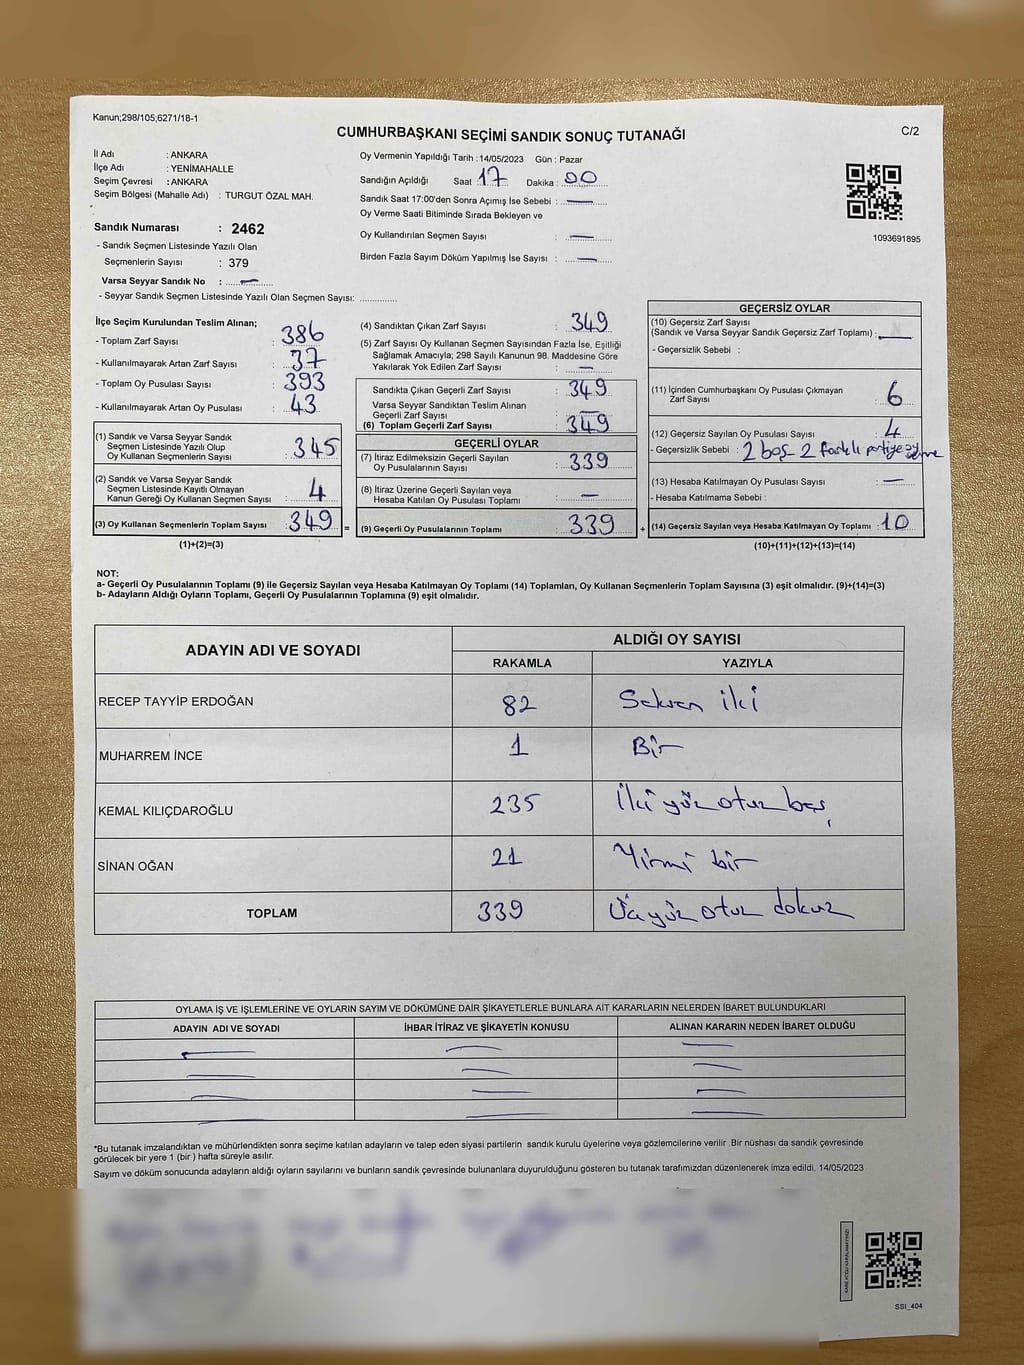 Kanun;298/105;6271/18-1
CUMHURBAŞKANI SEÇİMİ SANDIK SONUÇ TUTANAĞI
C/2
İl Adı : ANKARA
İlçe Adı : YENİMAHALLE
Seçim Çevresi : ANKARA
Seçim Bölgesi (Mahalle Adı) : TURGUT ÖZAL MAH.
Sandık Numarası : 2462
- Sandık Seçmen Listesinde Yazılı Olan
Seçmenlerin Sayısı : 379
Varsa Seyyar Sandık No : —
- Seyyar Sandık Seçmen Listesinde Yazılı Olan Seçmen Sayısı: ..............
Oy Vermenin Yapıldığı Tarih : 14/05/2023 Gün : Pazar
Sandığın Açıldığı Saat : 17 Dakika : 00
Sandık Saat 17:00'den Sonra Açımış İse Sebebi : —
Oy Verme Saati Bitiminde Sırada Bekleyen ve
Oy Kullandırılan Seçmen Sayısı : —
Birden Fazla Sayım Döküm Yapılmış İse Sayısı : —
1093691895
İlçe Seçim Kurulundan Teslim Alınan;
- Toplam Zarf Sayısı : 386
- Kullanılmayarak Artan Zarf Sayısı : 37
- Toplam Oy Pusulası Sayısı : 393
- Kullanılmayarak Artan Oy Pusulası : 43
(1) Sandık ve Varsa Seyyar Sandık
Seçmen Listesinde Yazılı Olup
Oy Kullanan Seçmenlerin Sayısı : 345
(2) Sandık ve Varsa Seyyar Sandık
Seçmen Listesinde Kayıtlı Olmayan
Kanun Gereği Oy Kullanan Seçmen Sayısı : 4
(3) Oy Kullanan Seçmenlerin Toplam Sayısı : 349 =
(1)+(2)=(3)
(4) Sandıktan Çıkan Zarf Sayısı : 349
(5) Zarf Sayısı Oy Kullanan Seçmen Sayısından Fazla İse, Eşitliği
Sağlamak Amacıyla; 298 Sayılı Kanunun 98. Maddesine Göre
Yakılarak Yok Edilen Zarf Sayısı : —
Sandıkta Çıkan Geçerli Zarf Sayısı : 349
Varsa Seyyar Sandıktan Teslim Alınan
Geçerli Zarf Sayısı : —
(6) Toplam Geçerli Zarf Sayısı : 349
GEÇERLİ OYLAR
(7) İtiraz Edilmeksizin Geçerli Sayılan
Oy Pusulalarının Sayısı : 339
(8) İtiraz Üzerine Geçerli Sayılan veya
Hesaba Katılan Oy Pusulası Toplamı : —
(9) Geçerli Oy Pusulalarının Toplamı : 339 +
GEÇERSİZ OYLAR
(10) Geçersiz Zarf Sayısı
(Sandık ve Varsa Seyyar Sandık Geçersiz Zarf Toplamı) : —
- Geçersizlik Sebebi :
(11) İçinden Cumhurbaşkanı Oy Pusulası Çıkmayan
Zarf Sayısı : 6
(12) Geçersiz Sayılan Oy Pusulası Sayısı : 4
- Geçersizlik Sebebi : 2 boş 2 farklı partiye
(13) Hesaba Katılmayan Oy Pusulası Sayısı : —
- Hesaba Katılmama Sebebi :
(14) Geçersiz Sayılan veya Hesaba Katılmayan Oy Toplamı : 10
(10)+(11)+(12)+(13)=(14)
NOT:
a- Geçerli Oy Pusulalarının Toplamı (9) ile Geçersiz Sayılan veya Hesaba Katılmayan Oy Toplamı (14) Toplamları, Oy Kullanan Seçmenlerin Toplam Sayısına (3) eşit olmalıdır. (9)+(14)=(3)
b- Adayların Aldığı Oyların Toplamı, Geçerli Oy Pusulalarının Toplamına (9) eşit olmalıdır.
ADAYIN ADI VE SOYADI ALDIĞI OY SAYISI
RAKAMLA YAZIYLA
RECEP TAYYİP ERDOĞAN 82 Seksen iki
MUHARREM İNCE 1 Bir
KEMAL KILIÇDAROĞLU 235 İki yüz otuz beş
SİNAN OĞAN 21 Yirmi bir
TOPLAM 339 Üçyüz otuz dokuz
OYLAMA İŞ VE İŞLEMLERİNE VE OYLARIN SAYIM VE DÖKÜMÜNE DAİR ŞİKAYETLERLE BUNLARA AİT KARARLARIN NELERDEN İBARET BULUNDUKLARI
ADAYIN ADI VE SOYADI İHBAR İTİRAZ VE ŞİKAYETİN KONUSU ALINAN KARARIN NEDEN İBARET OLDUĞU
*Bu tutanak imzalandıktan ve mühürlendikten sonra seçime katılan adayların ve talep eden siyasi partilerin sandık kurulu üyelerine veya gözlemcilerine verilir .Bir nüshası da sandık çevresinde
görülecek bir yere 1 (bir ) hafta süreyle asılır.
Sayım ve döküm sonucunda adayların aldığı oyların sayılarını ve bunların sandık çevresinde bulunanlara duyurulduğunu gösteren bu tutanak tarafımızdan düzenlenerek imza edildi. 14/05/2023
SSI_404